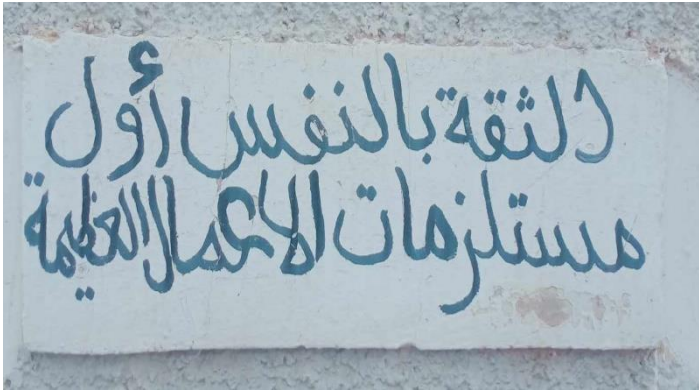 الثقة بالنفس أول
مستلزمات الاعمال العظيمة